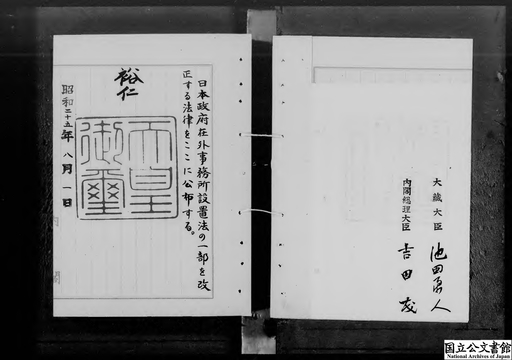 日本政府在外事務所設置法の一部を改
正する法律をここに公布する。
裕仁
天皇
御璽
昭和二十五年八月一日
大蔵大臣 池田勇人
内閣総理大臣 吉田茂
国立公文書館
National Archives of Japan